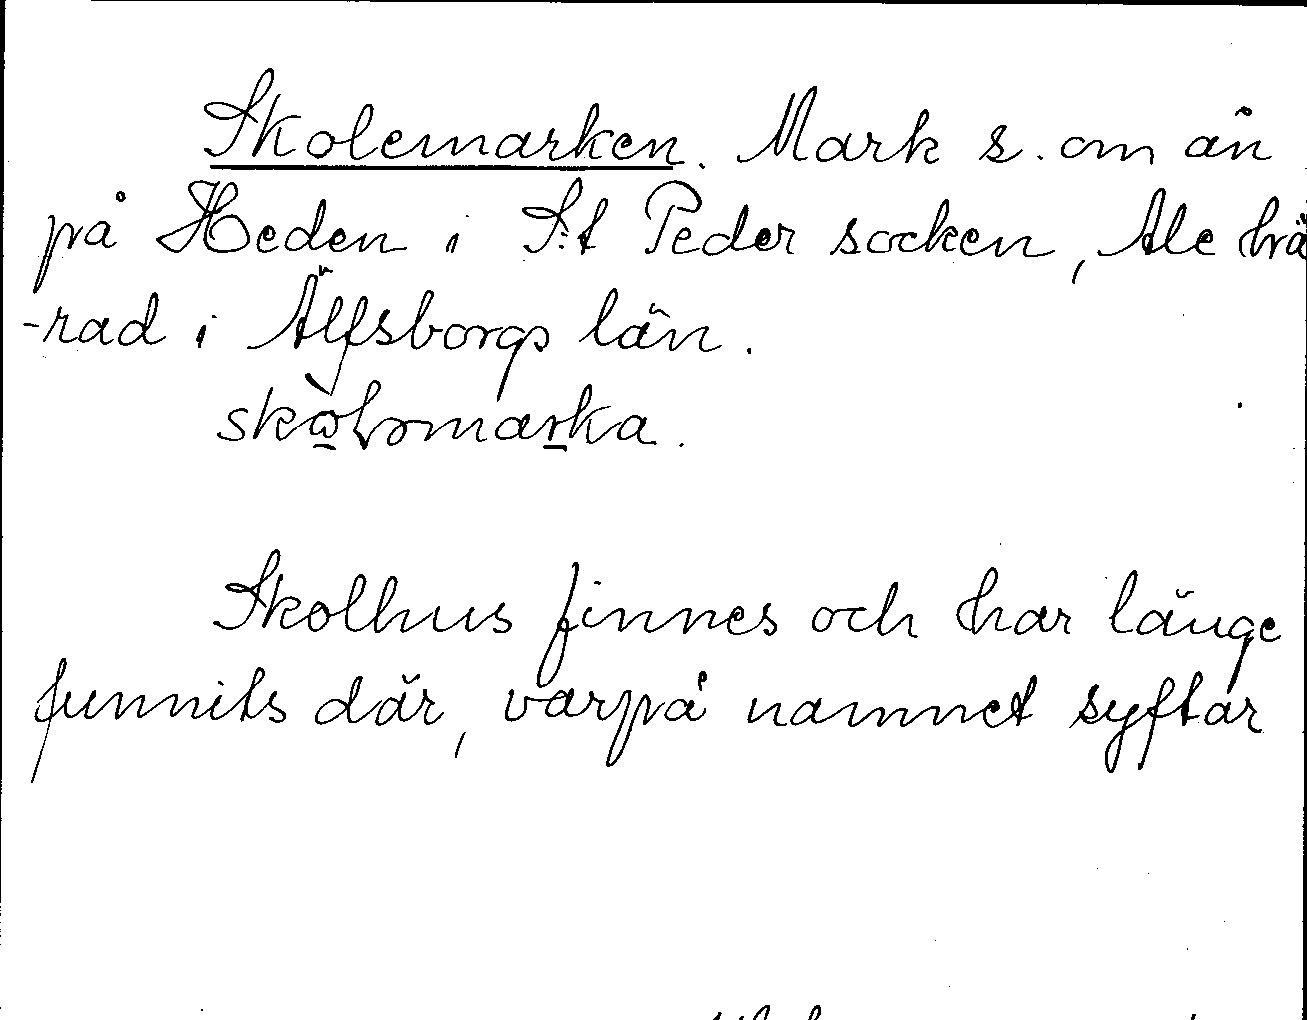 Skolemarken. Mark s. om ån
på Heden i S:t Peder socken, Ale hä
-rad i Älfsborgs län.
Skolhus finnes och har länge
funnits där, varpå namnet syftar